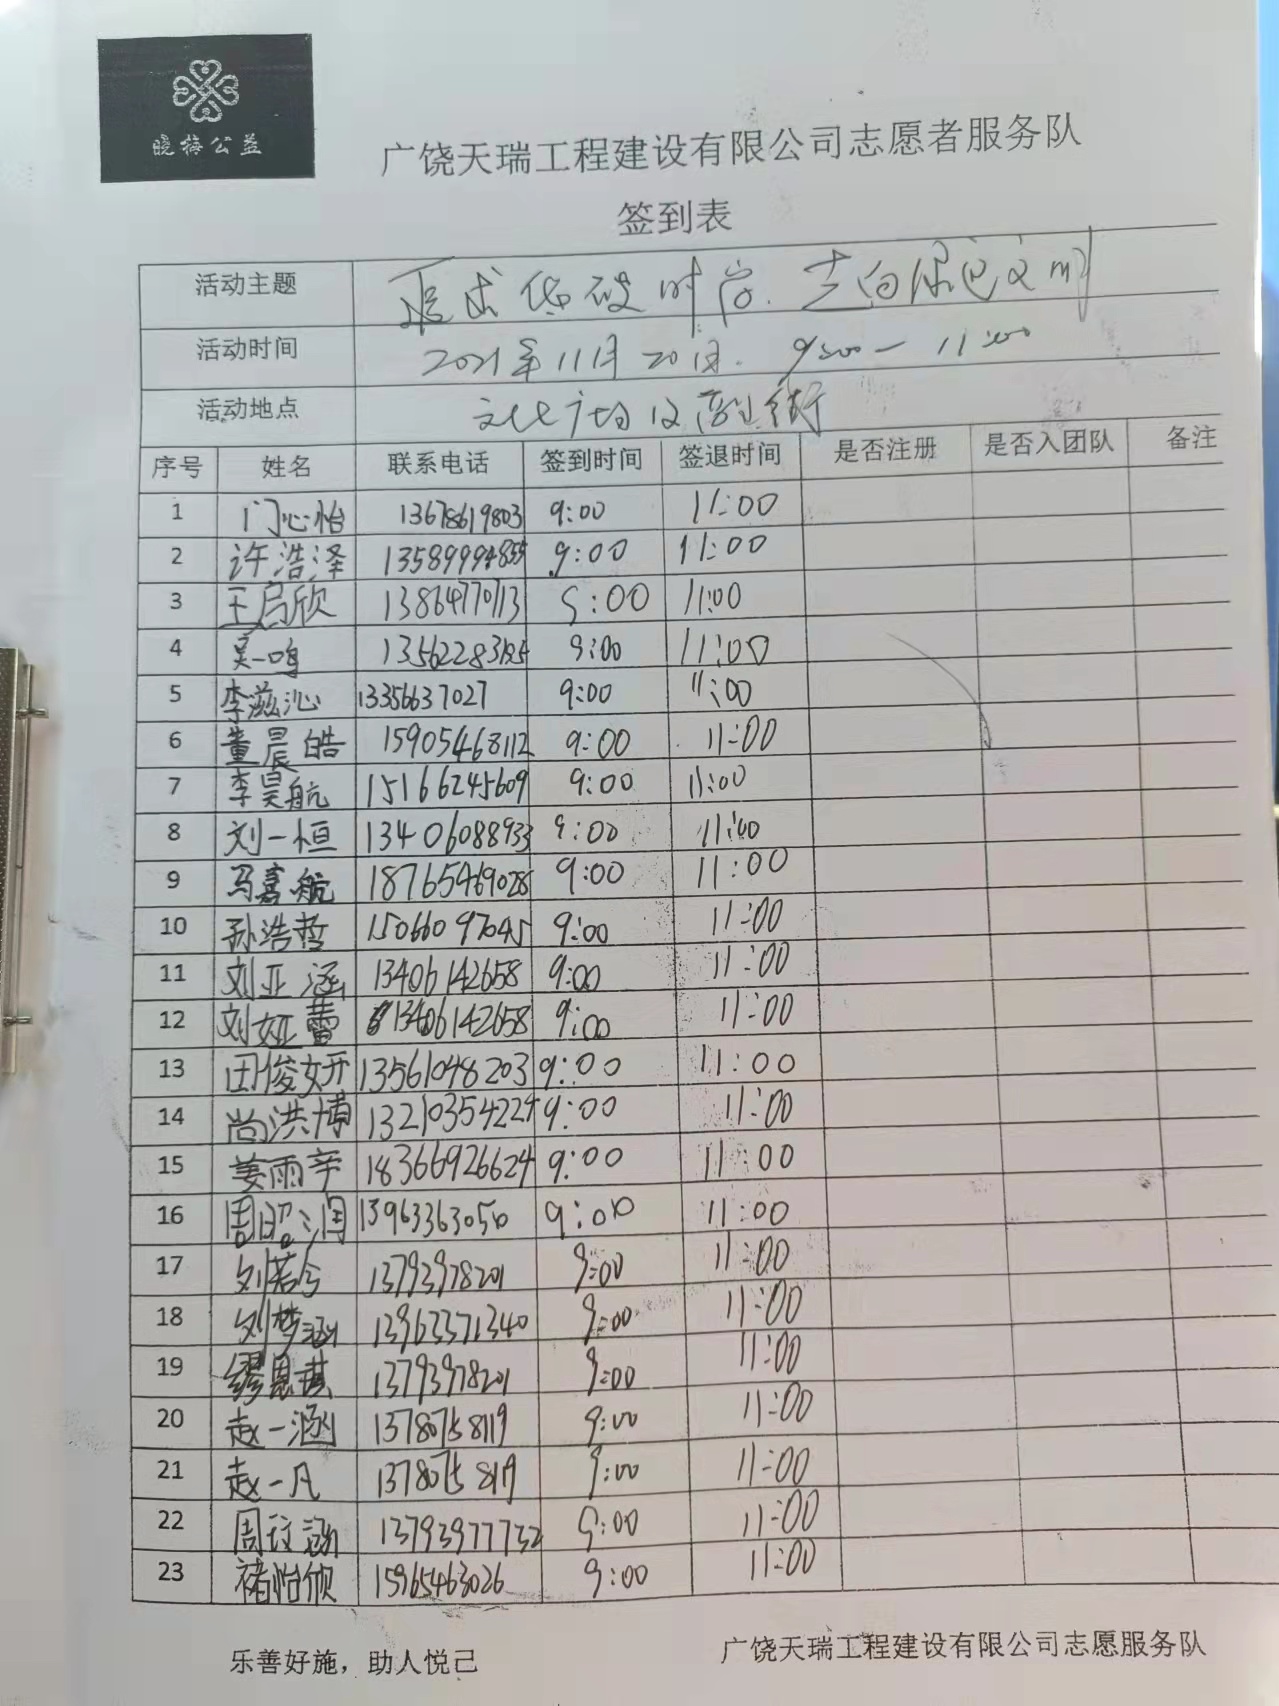 晓梅公益
广饶天瑞工程建设有限公司志愿者服务队
签到表
活动主题 追求低碳时尚 走向绿色文明
活动时间 2021年11月20日. 9:00一11:00
活动地点 文化广场
序号 姓名 联系电话 签到时间 签退时间 是否注册 是否入团队 备注
1 门心怡 13678619803 9:00 11:00
2 许浩泽 13589994855 9:00 11:00
3 王启欣 13864770713 9:00 11:00
4 吴一鸣 9:00 11:00
5 李滋沁 13356637027 9:00 11:00
6 董晨皓 15905468112 9:00 11:00
7 李昊航 15166245609 9:00 11:00
8 刘一桓 13406088933 9:00 11:00
9 马嘉航 18765469028 9:00 11:00
10 孙浩哲 15066097045 9:00 11:00
11 刘亚涵 13406142658 9:00 11:00
12 刘娅蕾 13406142658 9:00 11:00
13 田俊妍 13561048203 9:00 11:00
14 尚洪博 13210354224 9:00 11:00
15 姜雨辛 18366926624 9:00 11:00
16 周昭润 13963363050 9:00 11:00
17 刘若兮 13793978201 9:00 11:00
18 刘梦涵 13963371340 9:00 11:00
19 缪恩琪 13793978201 9:00 11:00
20 赵一涵 13780758119 9:00 11:00
21 赵一凡 13780758119 9:00 11:00
22 周钰涵 13793977732 9:00 11:00
23 褚怡欣 15965463026 9:00 11:00
乐善好施，助人悦己
广饶天瑞工程建设有限公司志愿服务队